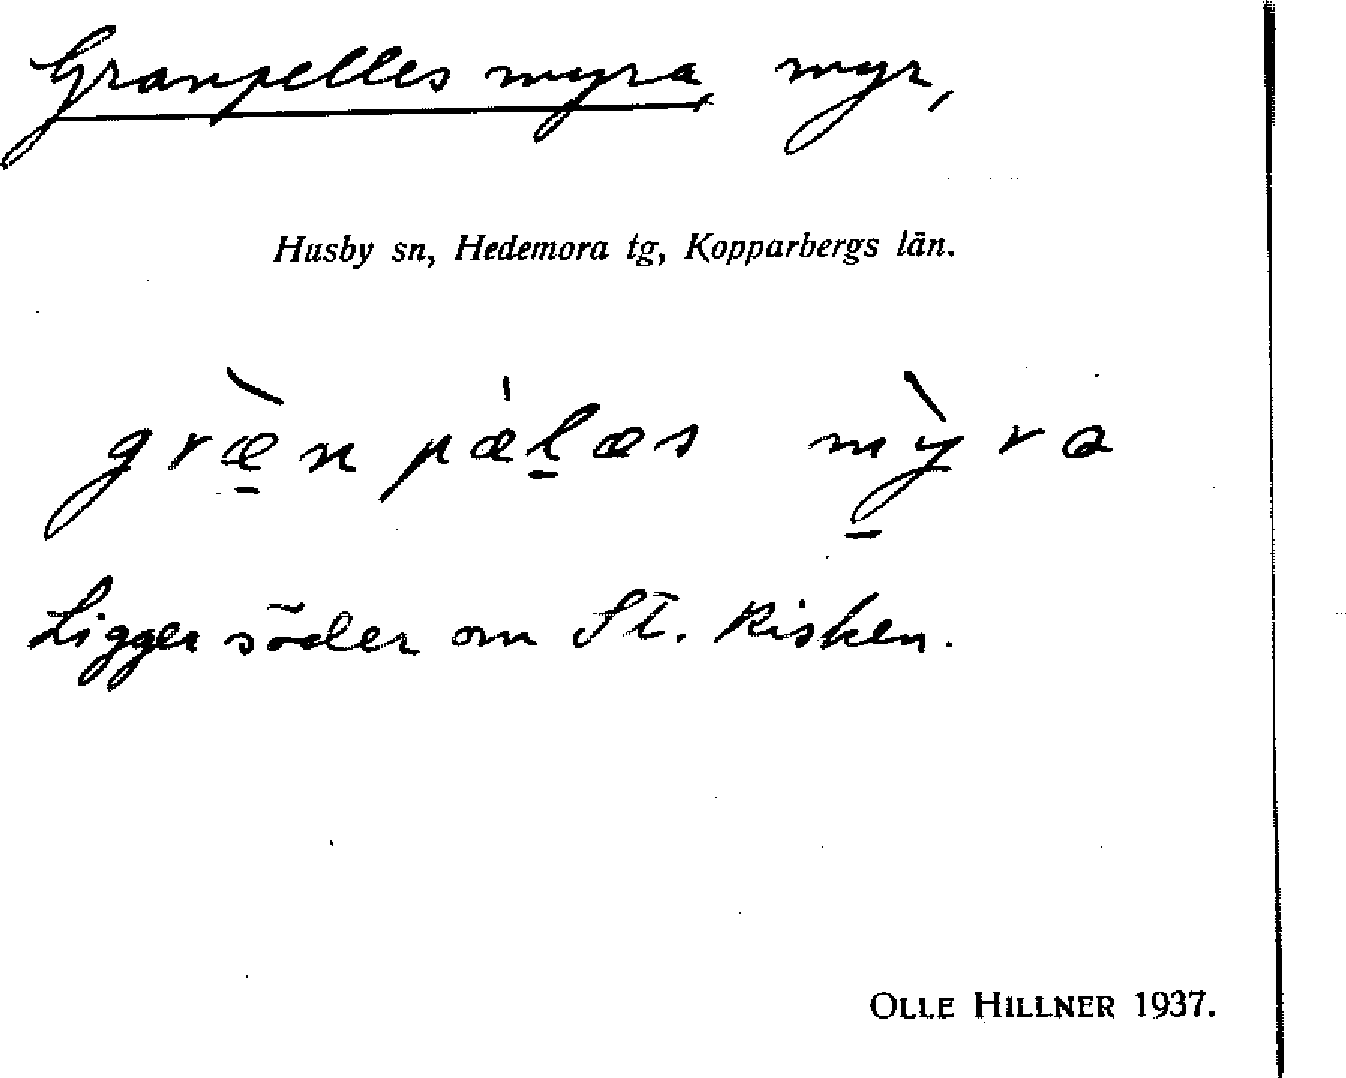 Granpelles myra, myr,
Husby sn, Hedemora tg, Kopparbergs län.
græ̀n pæ̍l̠æs mỳ̠ra
Ligger söder om St. Risken.
OLLE HILLNER 1937.